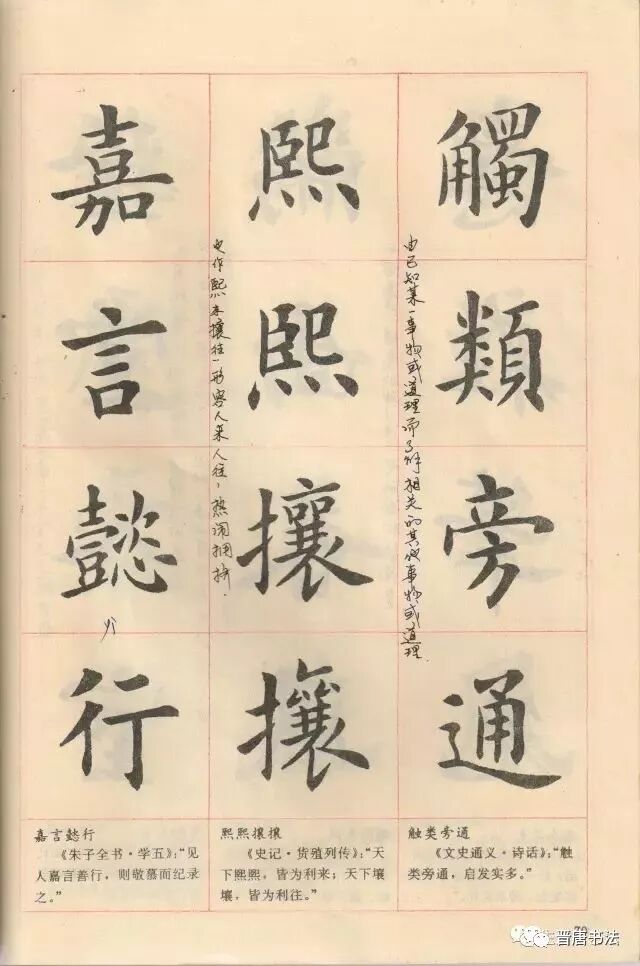 觸類旁通
由已知某一事物或道理而了解相关的其他事物或道理.
熙熙攘攘
也作熙来攘往,形容人来人往,热闹拥挤.
嘉言懿行
yì
触类旁通
《文史通义·诗话》:“触
类旁通,启发实多。”
熙熙攘攘
《史记·货殖列传》:“天
下熙熙,皆为利来;天下壤
壤,皆为利往。”
嘉言懿行
《朱子全书·学五》:“见
人嘉言善行,则敬慕而纪录
之。”
晋唐书法